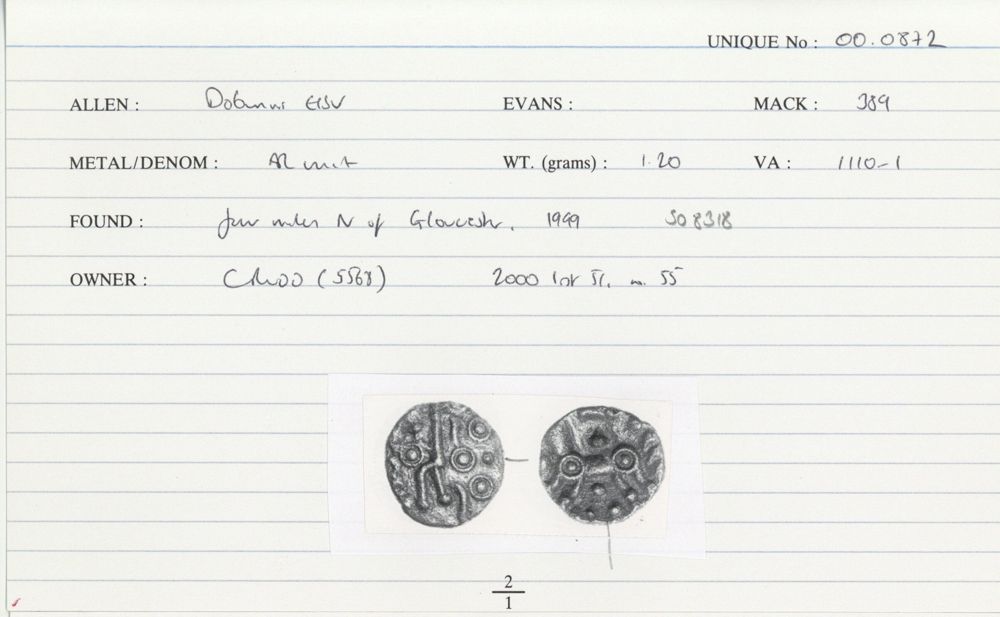 UNIQUE No : 00.0872
ALLEN : Dobunni EISV EVANS : MACK : 389
METAL/DENOM : AR unit WT. (grams) : 1.20 VA : 1110-1
FOUND : few miles N of Gloucester, 1999 SO 8318
OWNER : (5568) 2000 list 51, no. 55
2
1